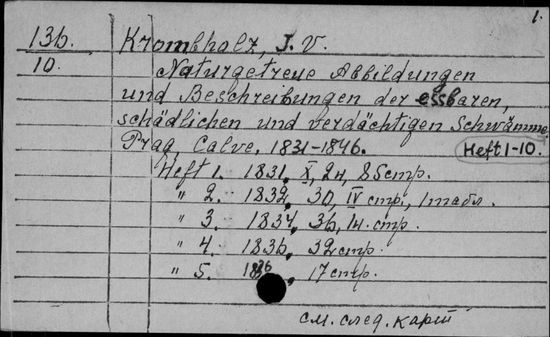 1.
136. Krombholz, J. V.
10. Naturgetreue Abbildungen
und Beschreibungen der essbaren,
schädlichen und verdächtigen Schwämme.
Prag Calve. 1831-1846.
Heft 1-10.
Heft 1. 1831, X, 24, 85 стр.
" 2. 1832, 30, IV стр., 1 табл.
" 3. 1834, 36, 14. стр.
" 4. 1836, 32 стр.
" 5. 1836, 17 стр.
см. след. карт